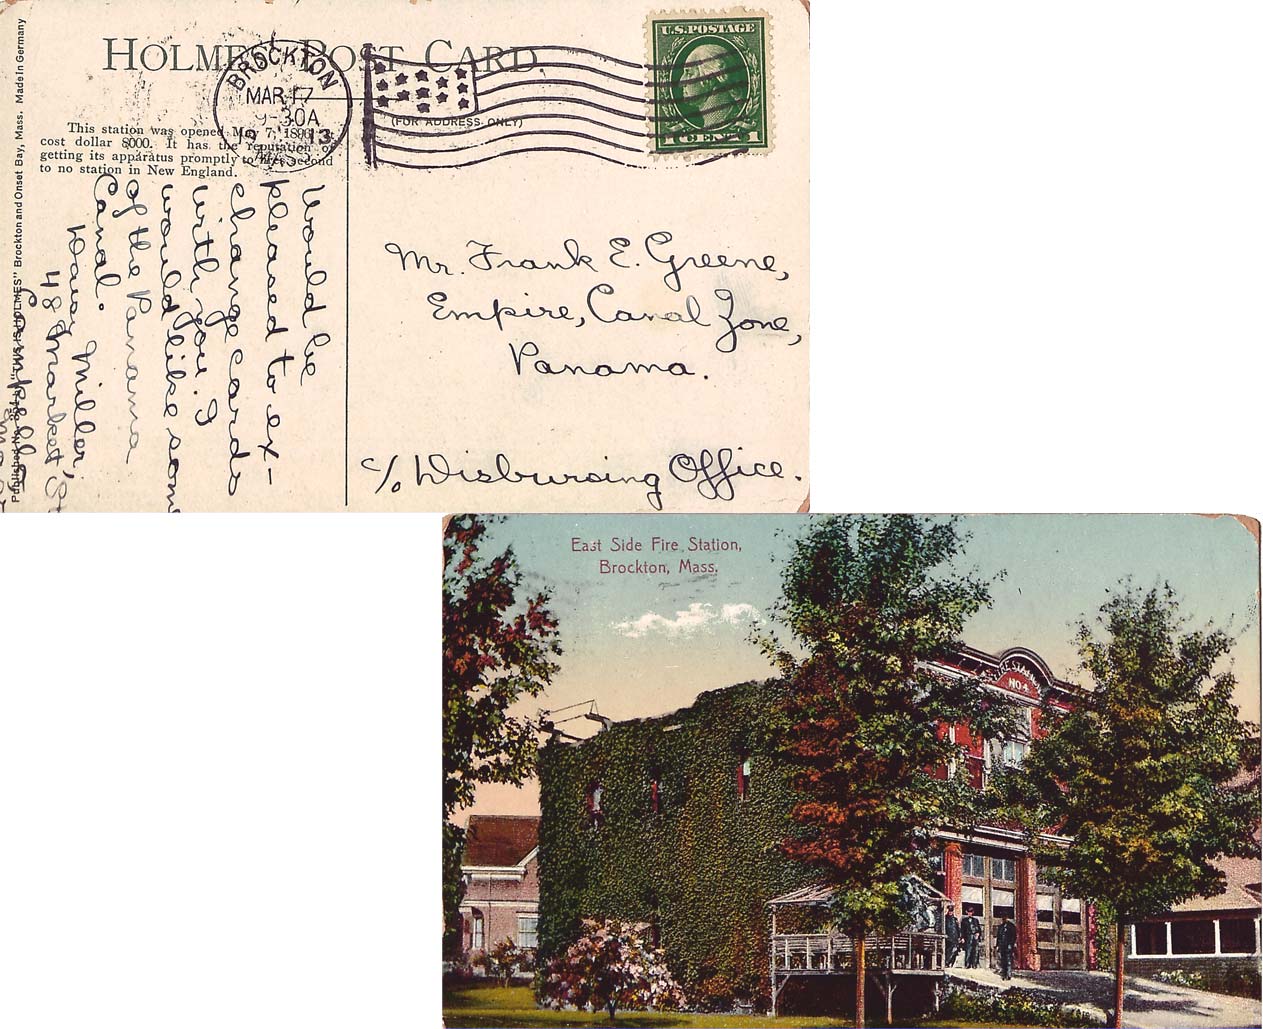 HOLMES POST CARD.
BROCKTON
MAR 17
9-30A
13
MASS.
(FOR ADDRESS ONLY)
U.S. POSTAGE
1 CENT 1
This station was opened May 7, 1898,
cost dollar 8000. It has the reputation of
getting its apparatus promptly to fires second
to no station in New England.
Made In Germany
Brockton and Onset Bay, Mass.
"THIS IS HOLMES"
Would be
pleased to ex-
change cards
with you. I
would like some
of the Panama
Canal.
Miller,
48 Market St
Mr. Frank E. Greene,
Empire, Canal Zone,
Panama.
c/o Disbursing Office.
East Side Fire Station,
Brockton, Mass.
FIRE STATION
NO 4